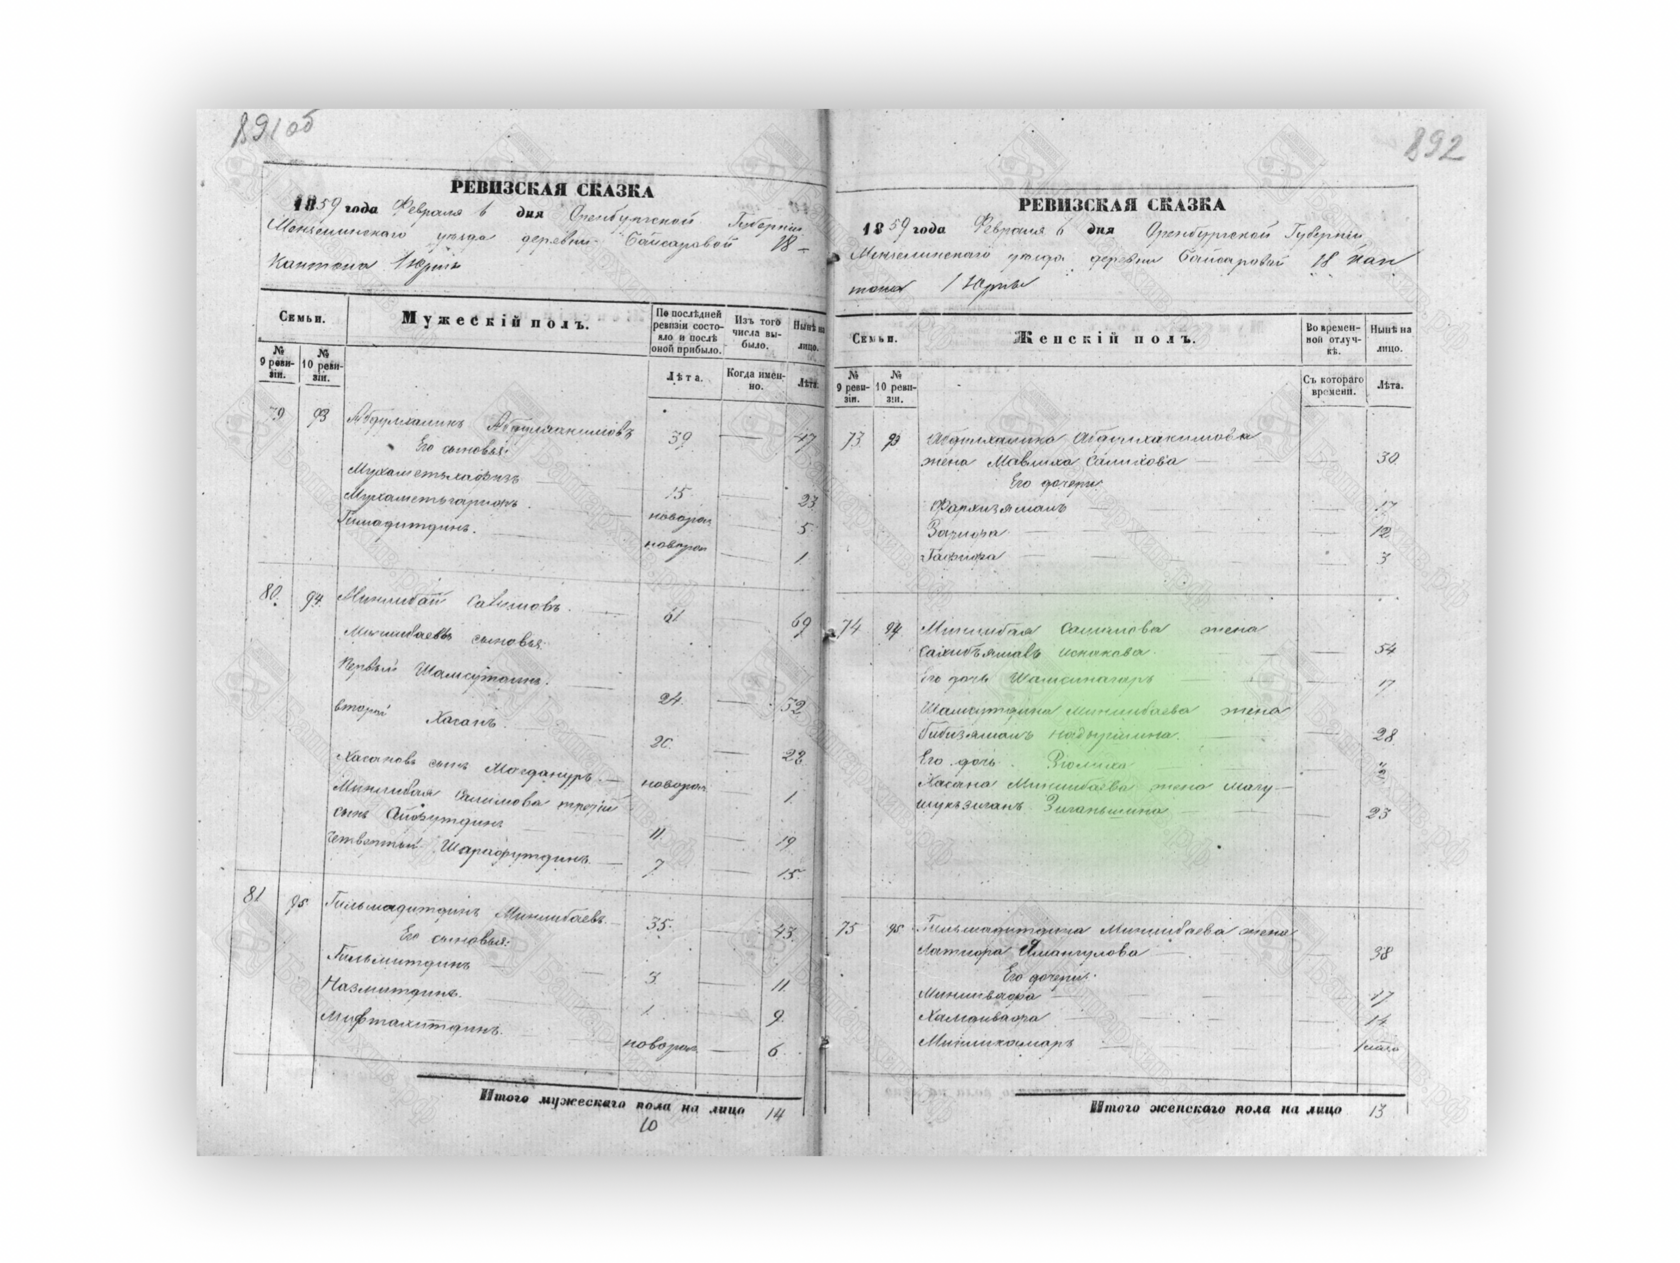 891об
РЕВИЗСКАЯ СКАЗКА
1859 года Февраля 6 дня Оренбургской Губерніи
Мензелинскаго уезда деревни Байсаровой 18
Кантона 1 Юрты
Семьи.
Мужескій полъ.
По послѣдней ревизіи состояло и послѣ оной прибыло.
Изъ того числа выбыло.
Нынѣ на лицо.
№ 9 ревизіи.
№ 10 ревизіи.
Лѣта.
Когда именно.
Лѣта.
79 93 Абдулхаликъ Абдулхакимовъ 39 47
Его сыновья:
15 23
Мухаметьгарифъ новорож 5
Гимадитдинъ. новорож 1
80. 94. Минлибай Салимовъ 61 69
Минлибаевы сыновья
Первый Шамсутдинъ. 24 32
второй Хасанъ 20 28
Хасановъ сынъ Магдануръ новорож 1
Минлибая Салимова третій
сынъ Айфутдинъ 11 19
Четвертый Шарафутдинъ 7 15
81 95 Гильмадитдинъ Минлибаевъ 35 43
Его сыновья:
Гильмитдинъ 3 11
Назмитдинъ. 1 9
Мифтахитдинъ. новорож 6
Итого мужескаго пола на лицо 14
10
892
РЕВИЗСКАЯ СКАЗКА
1859 года Февраля 6 дня Оренбургской Губерніи
Мензелинскаго уезда деревни Байсаровой 18 кан
тона 1 Юрты
Семьи.
Женскій полъ.
Во временной отлучкѣ.
Нынѣ на лицо.
№ 9 ревизіи.
№ 10 ревизіи.
Съ котораго времени.
Лѣта.
73 93 Абдулхалика Абдулхакимова
жена Мавлиха Салихова 30
Его дочери:
Фархизямалъ 17
12
Гафифа 3
74 94 Минлибая Салимова жена
54
Его дочь 17
Шамсутдина Минлибаева жена
Бибизямалъ Надыршина 28
Его дочь Зюлиха
Хасана Минлибаева жена Магу-
Зиганьшина 23
75 95 Гильмадитдина Минлибаева жена
Латифа Ямангулова 38
Его дочери:
Минливафа 17
14
Минликамаръ
Итого женскаго пола на лицо 13
Башархив.рф